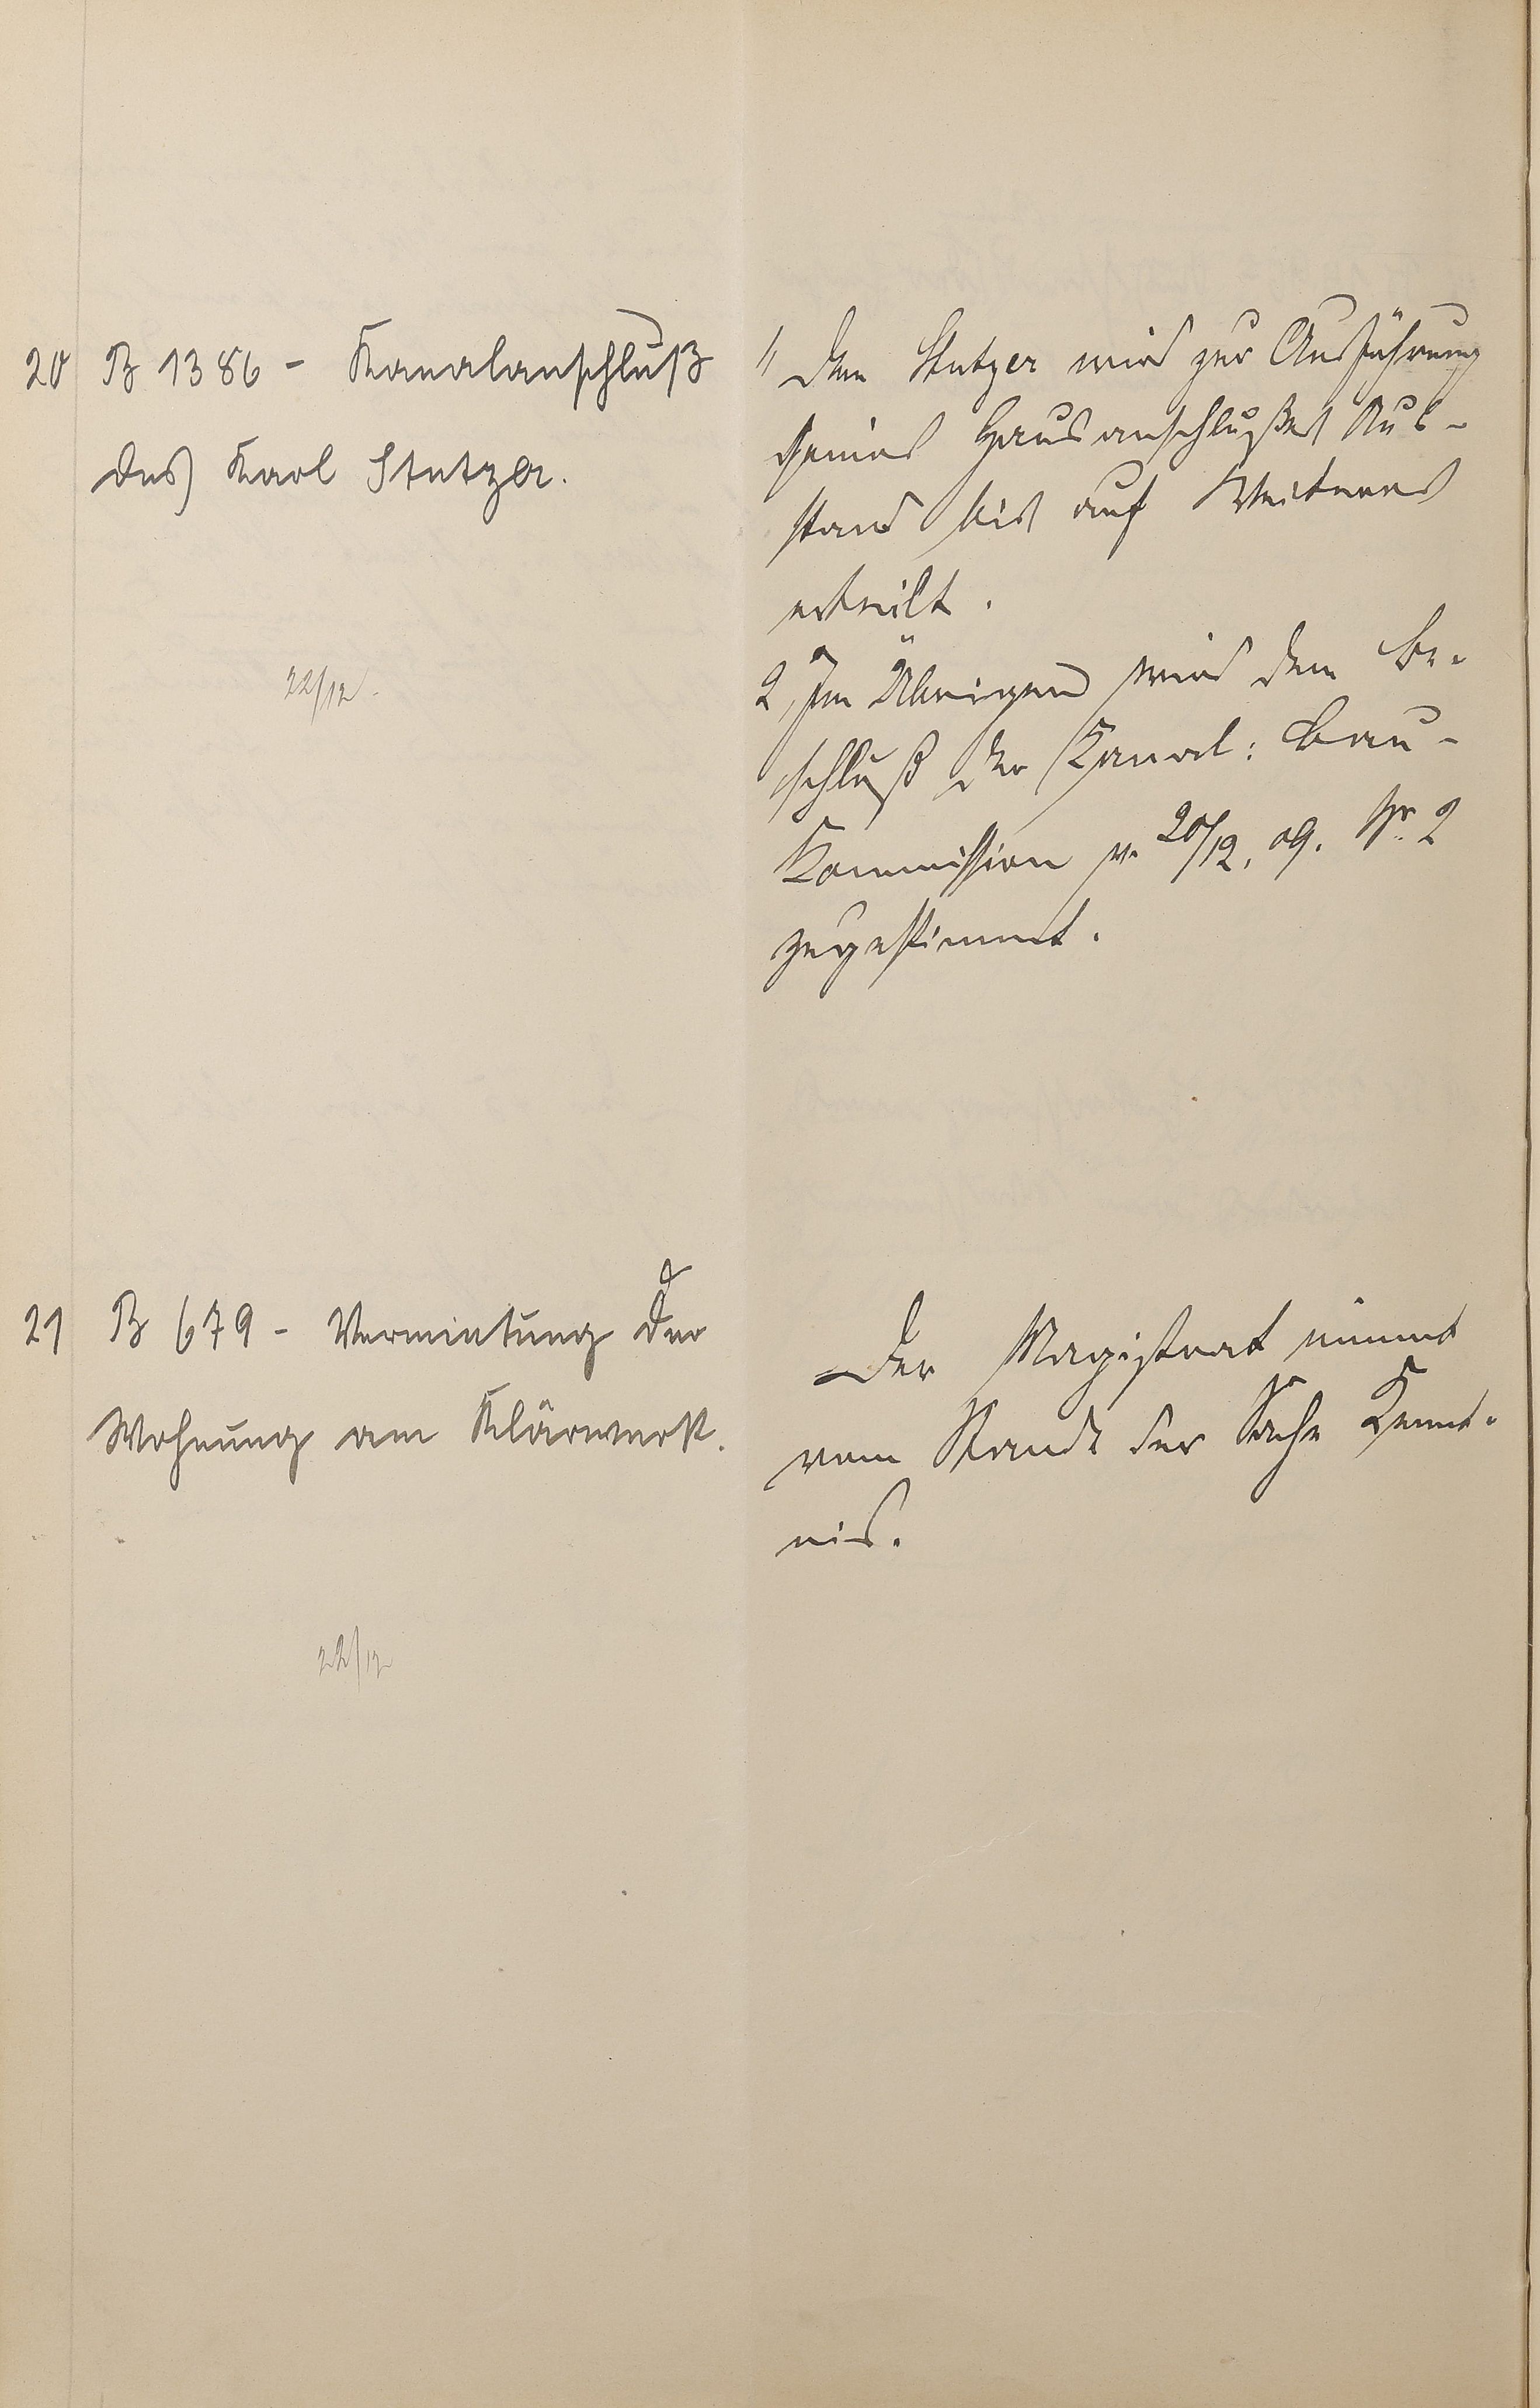 20 B 1386 - Kanalanschluß
des Karl Stutzer.
22/12.
1, Dem Stutzer wird zur Ausführung
seines Hausanschlußes Aus-
stand bis auf Weiteres
erteilt.
2, Im Übrigen wird dem Be-
schluß der Kanal: Bau-
Kommission v. 20/12. 09. Nr. 2
zugestimmt.
21 B 679 - Vermietung der
Wohnung am Klärwerk.
22/12
Der Magistrat nimmt
vom Stande der Sache Kennt-
nis.